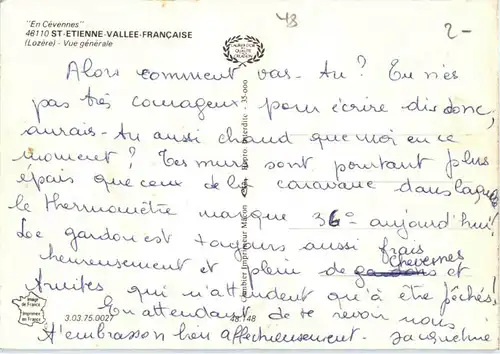 "En Cévennes"
48110 ST-ETIENNE-VALLEE-FRANÇAISE
(Lozère) - Vue générale
48
2-
Alors comment vas-tu ? Tu n'es
pas très courageux pour écrire dis donc,
aurais-tu aussi chaud que moi en ce
moment ? Tes murs sont pourtant plus
épais que ceux de la caravane dans laquelle
le thermomètre marque 36° aujourd'hui!
Le gardon est toujours aussi frais
heureusement et plein de chevesnes et
truites qui n'attendent qu'à être pêchés!
En attendant de te revoir nous
t'embrassons bien affectueusement. Jacqueline
Combier Imprimeur Mâcon
Repro Interdite - 35-000
Image de France
Imprimée en France
3.03.75.0027
48.148